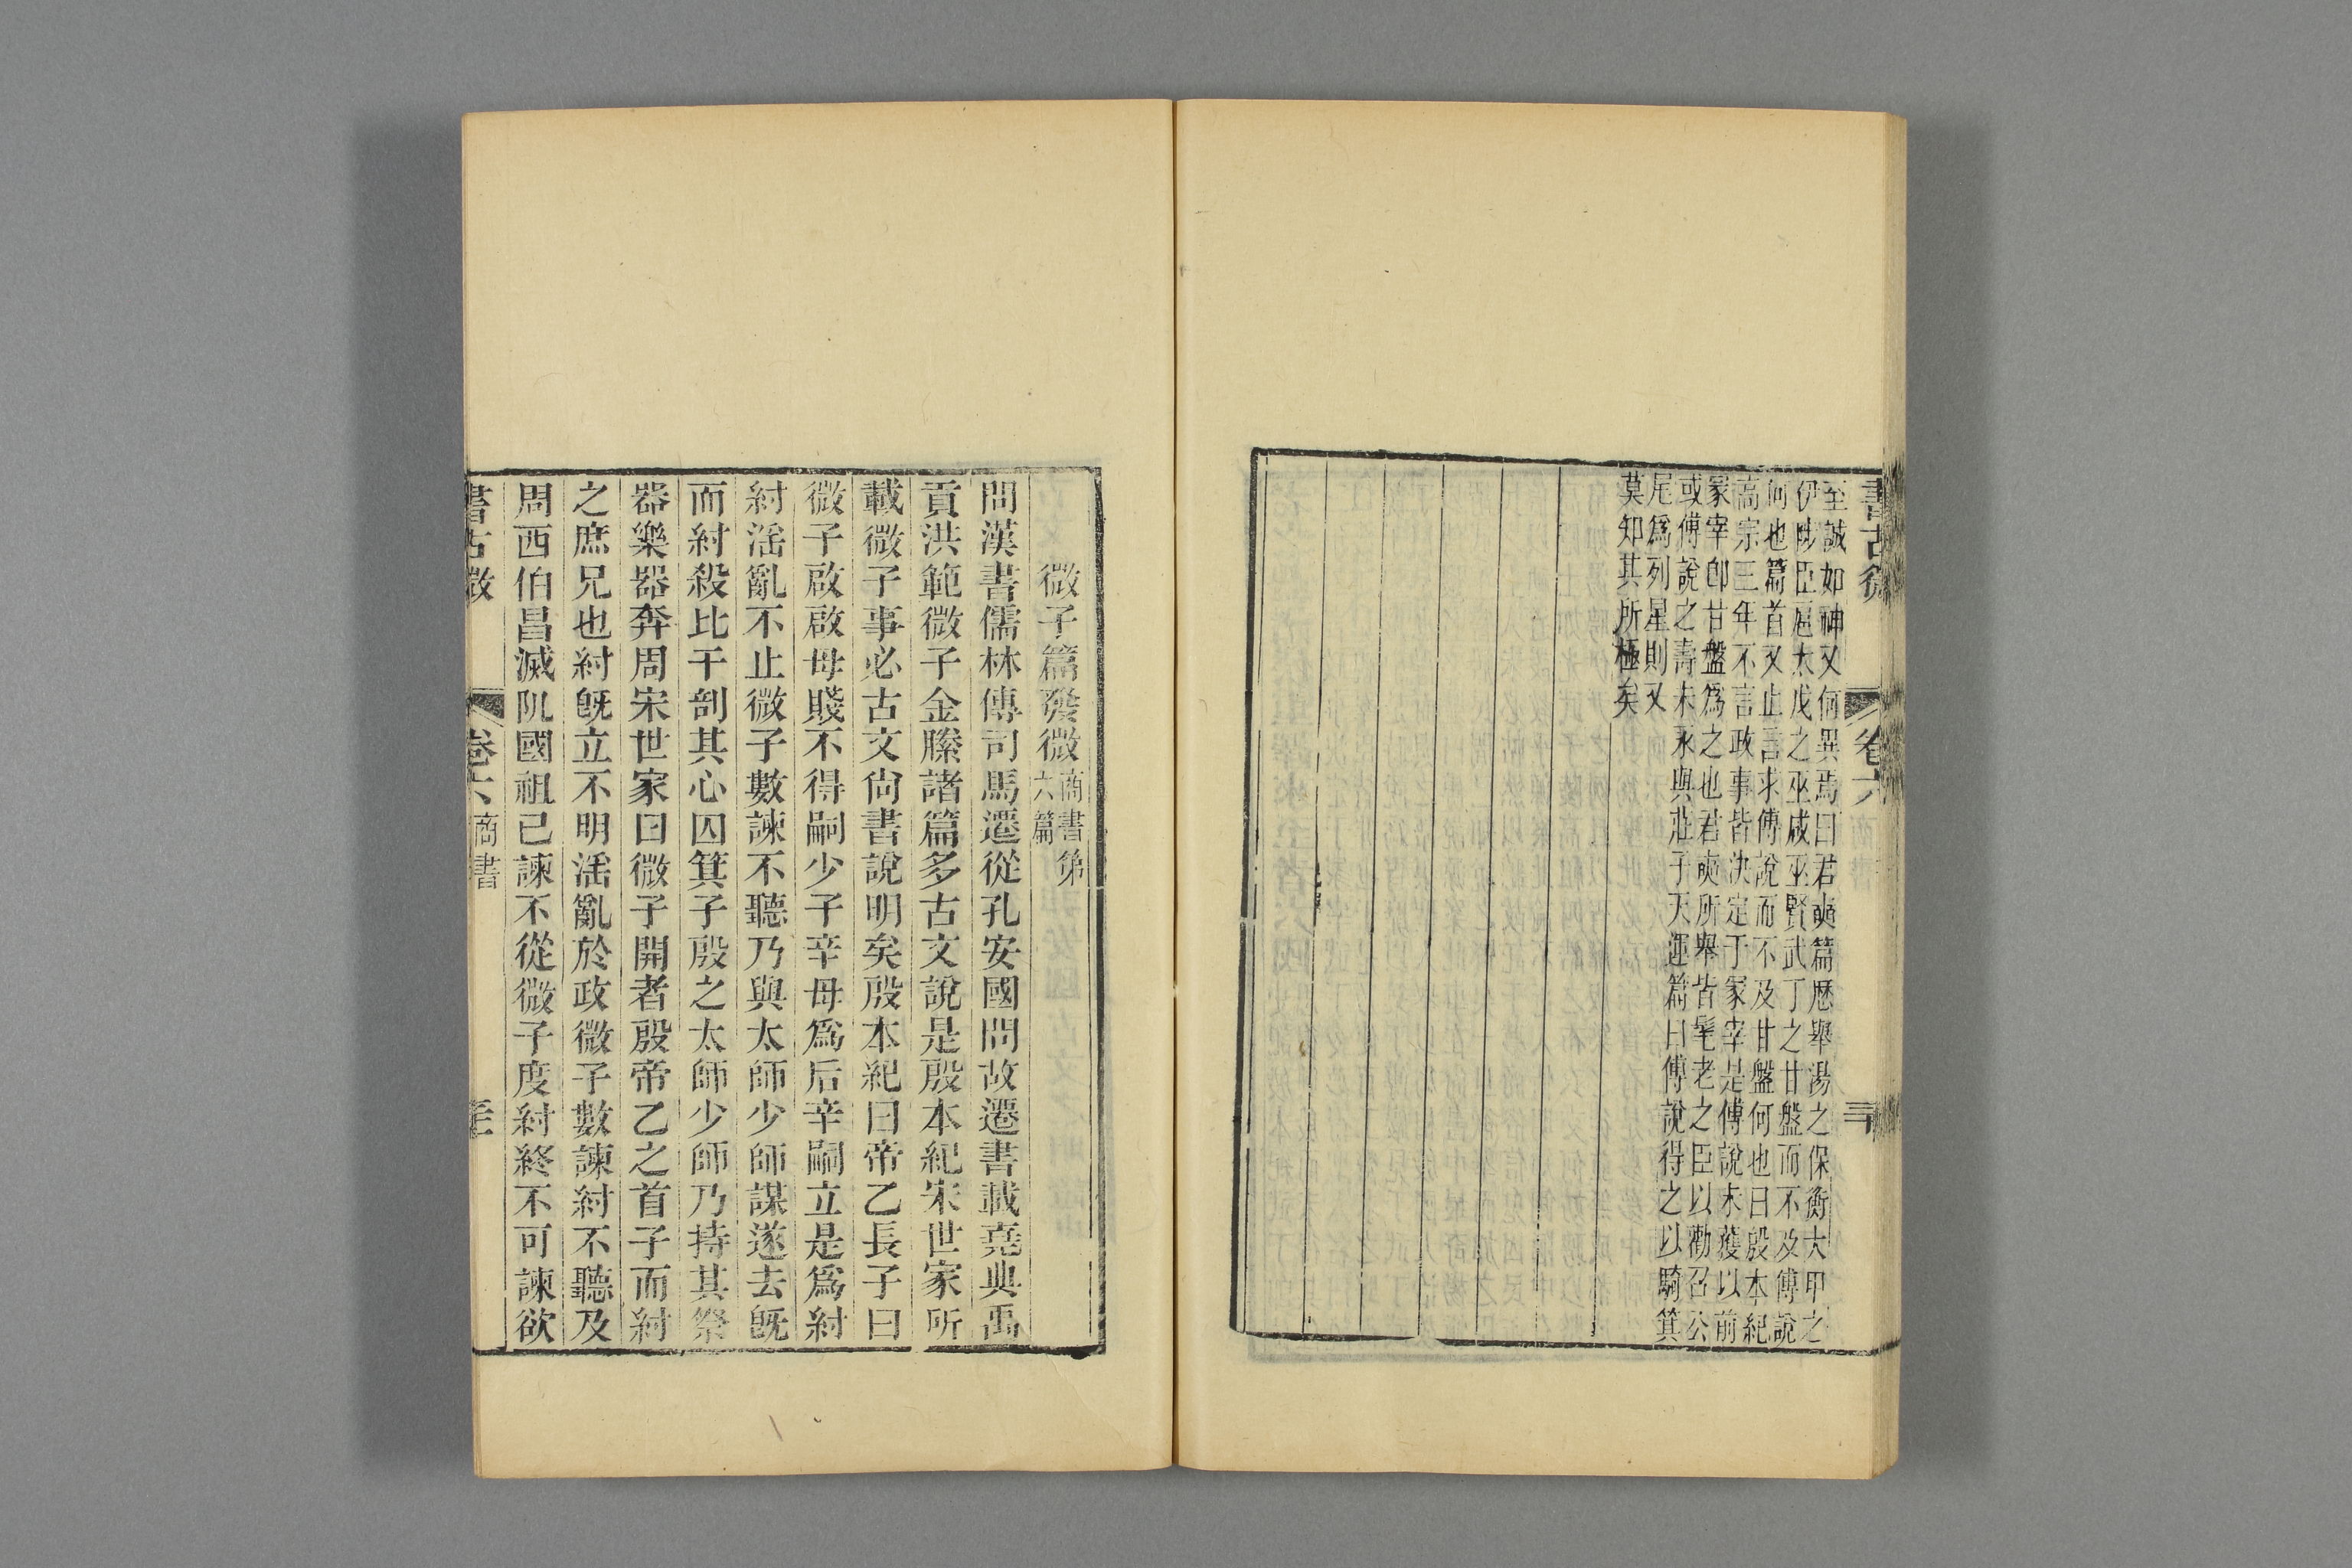 書古微 卷六 三十
至誠如神又何異焉曰君奭篇歷舉湯之保衡大甲之
伊陟臣扈太戊之巫咸巫賢武丁之甘盤而不及傅說
何也篇首又止言求傅說而不及甘盤何也曰殷本紀
高宗三年不言政事皆決定于冢宰是傅說未獲以前
冢宰卽甘盤爲之也君奭所舉皆耄老之臣以勸召公
或傅說之壽未永與莊子天運篇曰傅說得之以騎箕
尾爲列星則又
莫知其所極矣
微子篇發微商書第
六篇
問漢書儒林傳司馬遷從孔安國問故遷書載堯典禹
貢洪範微子金縢諸篇多古文說是殷本紀宋世家所
載微子事必古文尙書說明矣殷本紀曰帝乙長子曰
微子啟啟母賤不得嗣少子辛母爲后辛嗣立是爲紂
紂淫亂不止微子數諫不聽乃與太師少師謀遂去旣
而紂殺比干剖其心囚箕子殷之太師少師乃持其祭
器樂器奔周宋世家曰微子開者殷帝乙之首子而紂
之庶兄也紂旣立不明淫亂於政微子數諫紂不聽及
周西伯昌滅阢國祖已諫不從微子度紂終不可諫欲
書古微 卷六 商書